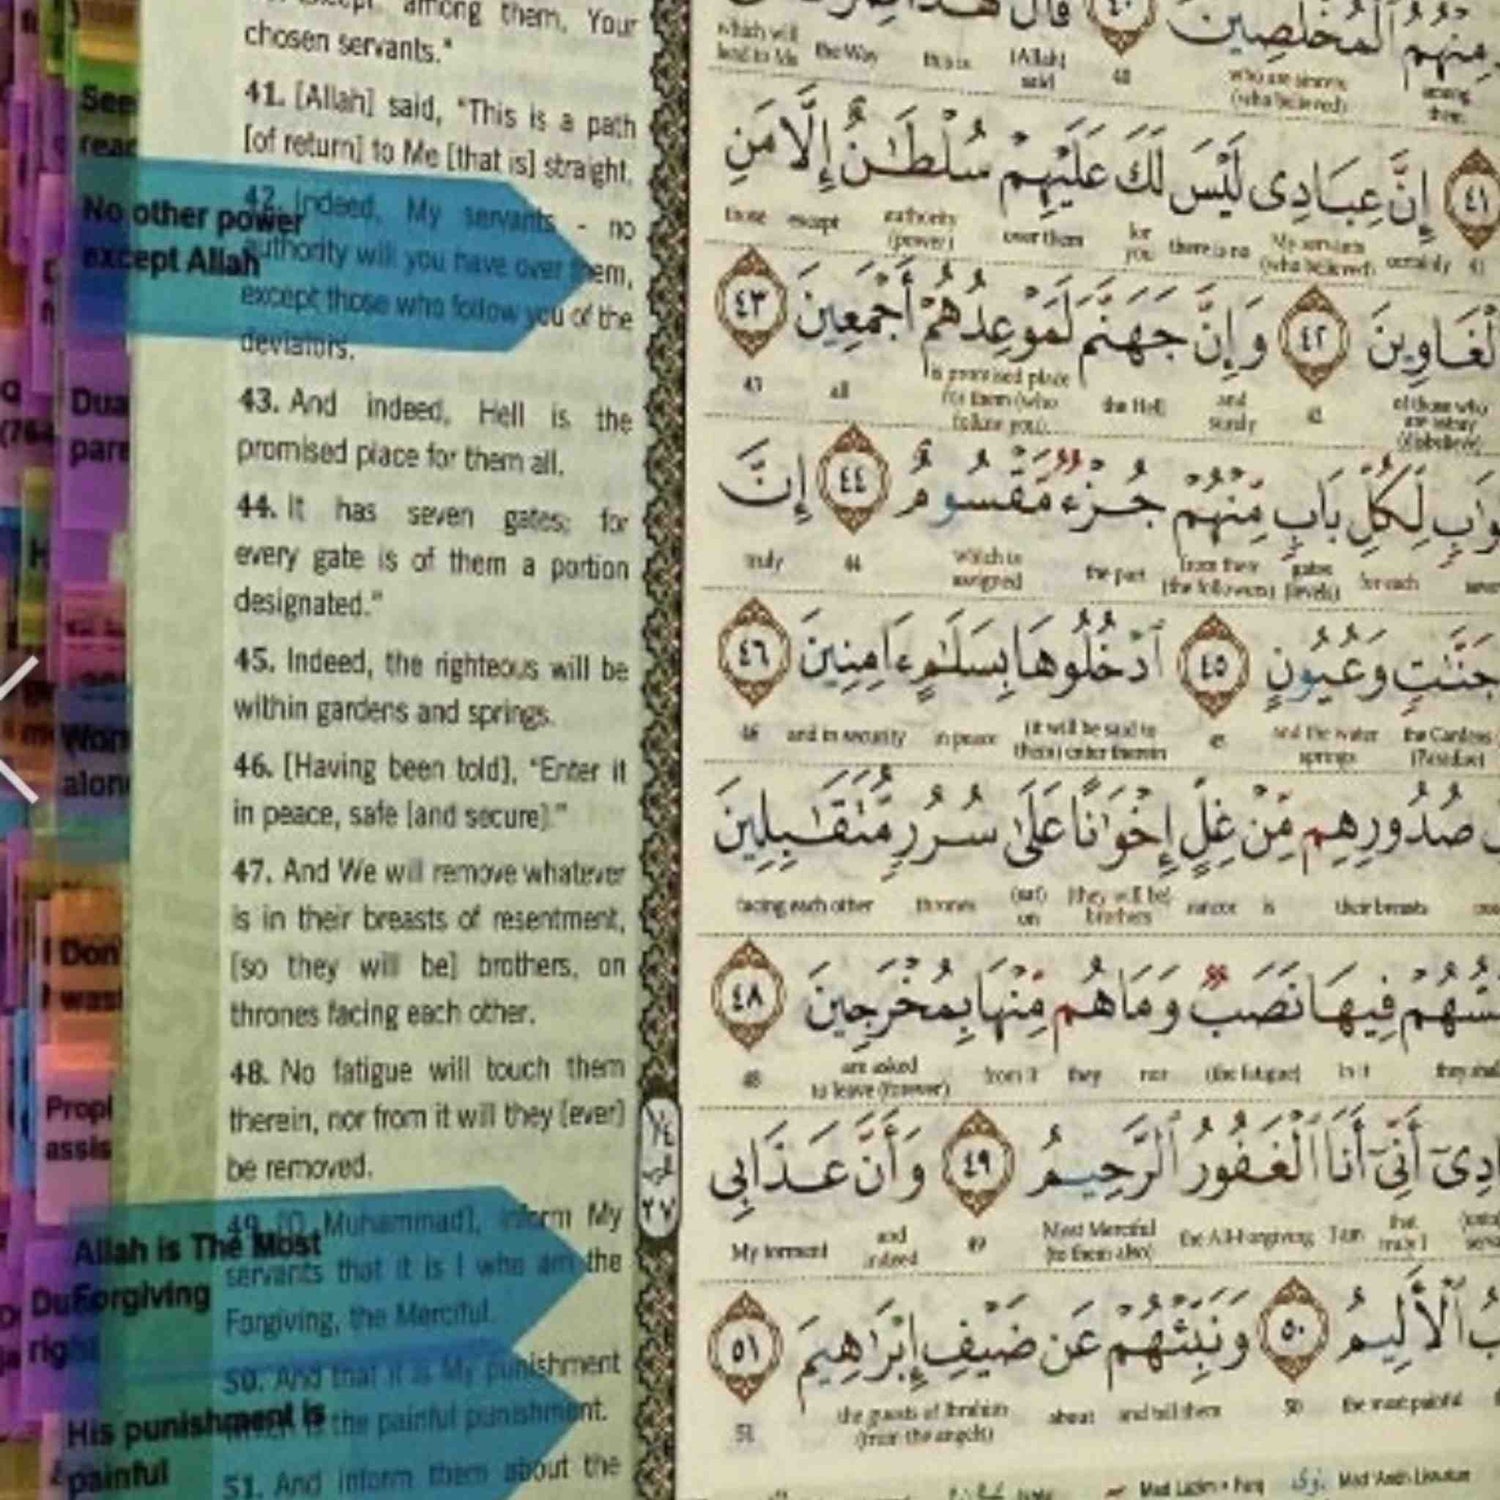 among them, Your
chosen servants."
41. [Allah] said, "This is a path
[of return] to Me [that is] straight.
42. Indeed, My servants - no
authority will you have over them,
except those who follow you of the
deviators.
43. And indeed, Hell is the
promised place for them all.
44. It has seven gates; for
every gate is of them a portion
designated."
45. Indeed, the righteous will be
within gardens and springs.
46. [Having been told], "Enter it
in peace, safe [and secure]."
47. And We will remove whatever
is in their breasts of resentment,
[so they will be] brothers, on
thrones facing each other.
48. No fatigue will touch them
therein, nor from it will they [ever]
be removed.
49. [O Muhammad], inform My
servants that it is I who am the
Forgiving, the Merciful.
50. And that it is My punishment
which is the painful punishment.
51. And inform them about the
No other power
except Allah
Allah is The Most
Forgiving
His punishment is
painful
See
Dua
alone
Don'
Propl
assis
١٤
٢٧
مِنْهُمُ الْمُخْلَصِينَ ٤٠ قَالَ هَٰذَا
among them who are sincere (who believed) 40 [Allah] said this is the Way which will lead to Me
٤١ إِنَّ عِبَادِى لَيْسَ لَكَ عَلَيْهِمْ سُلْطَٰنٌ إِلَّا مَنِ
41 certainly My servants (who believed) there is no for you over them authority (power) except those
الْغَاوِينَ ٤٢ وَإِنَّ جَهَنَّمَ لَمَوْعِدُهُمْ أَجْمَعِينَ ٤٣
of those who are astray (disbelieve) 42 and surely the Hell is promised place for them (who follow you) all 43
لِكُلِّ بَابٍ مِّنْهُمْ جُزْءٌ مَّقْسُومٌ ٤٤ إِنَّ
for each gates (levels) from their (the followers) the part which is assigned 44 truly
جَنَّٰتٍ وَعُيُونٍ ٤٥ ادْخُلُوهَا بِسَلَٰمٍ ءَامِنِينَ ٤٦
the Gardens (Paradise) and the water springs 45 (it will be said to them) enter therein in peace and in security 46
صُدُورِهِم مِّنْ غِلٍّ إِخْوَٰنًا عَلَىٰ سُرُرٍ مُّتَقَٰبِلِينَ
their breasts is rancor [they will be] brothers (sat) on thrones facing each other
فِيهَا نَصَبٌ وَمَا هُم مِّنْهَا بِمُخْرَجِينَ ٤٨
in it (the fatigue) nor they from it are asked to leave (forever) 48
أَنِّىٓ أَنَا الْغَفُورُ الرَّحِيمُ ٤٩ وَأَنَّ عَذَابِى
that I am the All-Forgiving Most Merciful (to them also) 49 and indeed My torment
الْأَلِيمُ ٥٠ وَنَبِّئْهُمْ عَن ضَيْفِ إِبْرَٰهِيمَ ٥١
the most painful 50 and tell them about the guests of Ibrahim (from the angels) 51